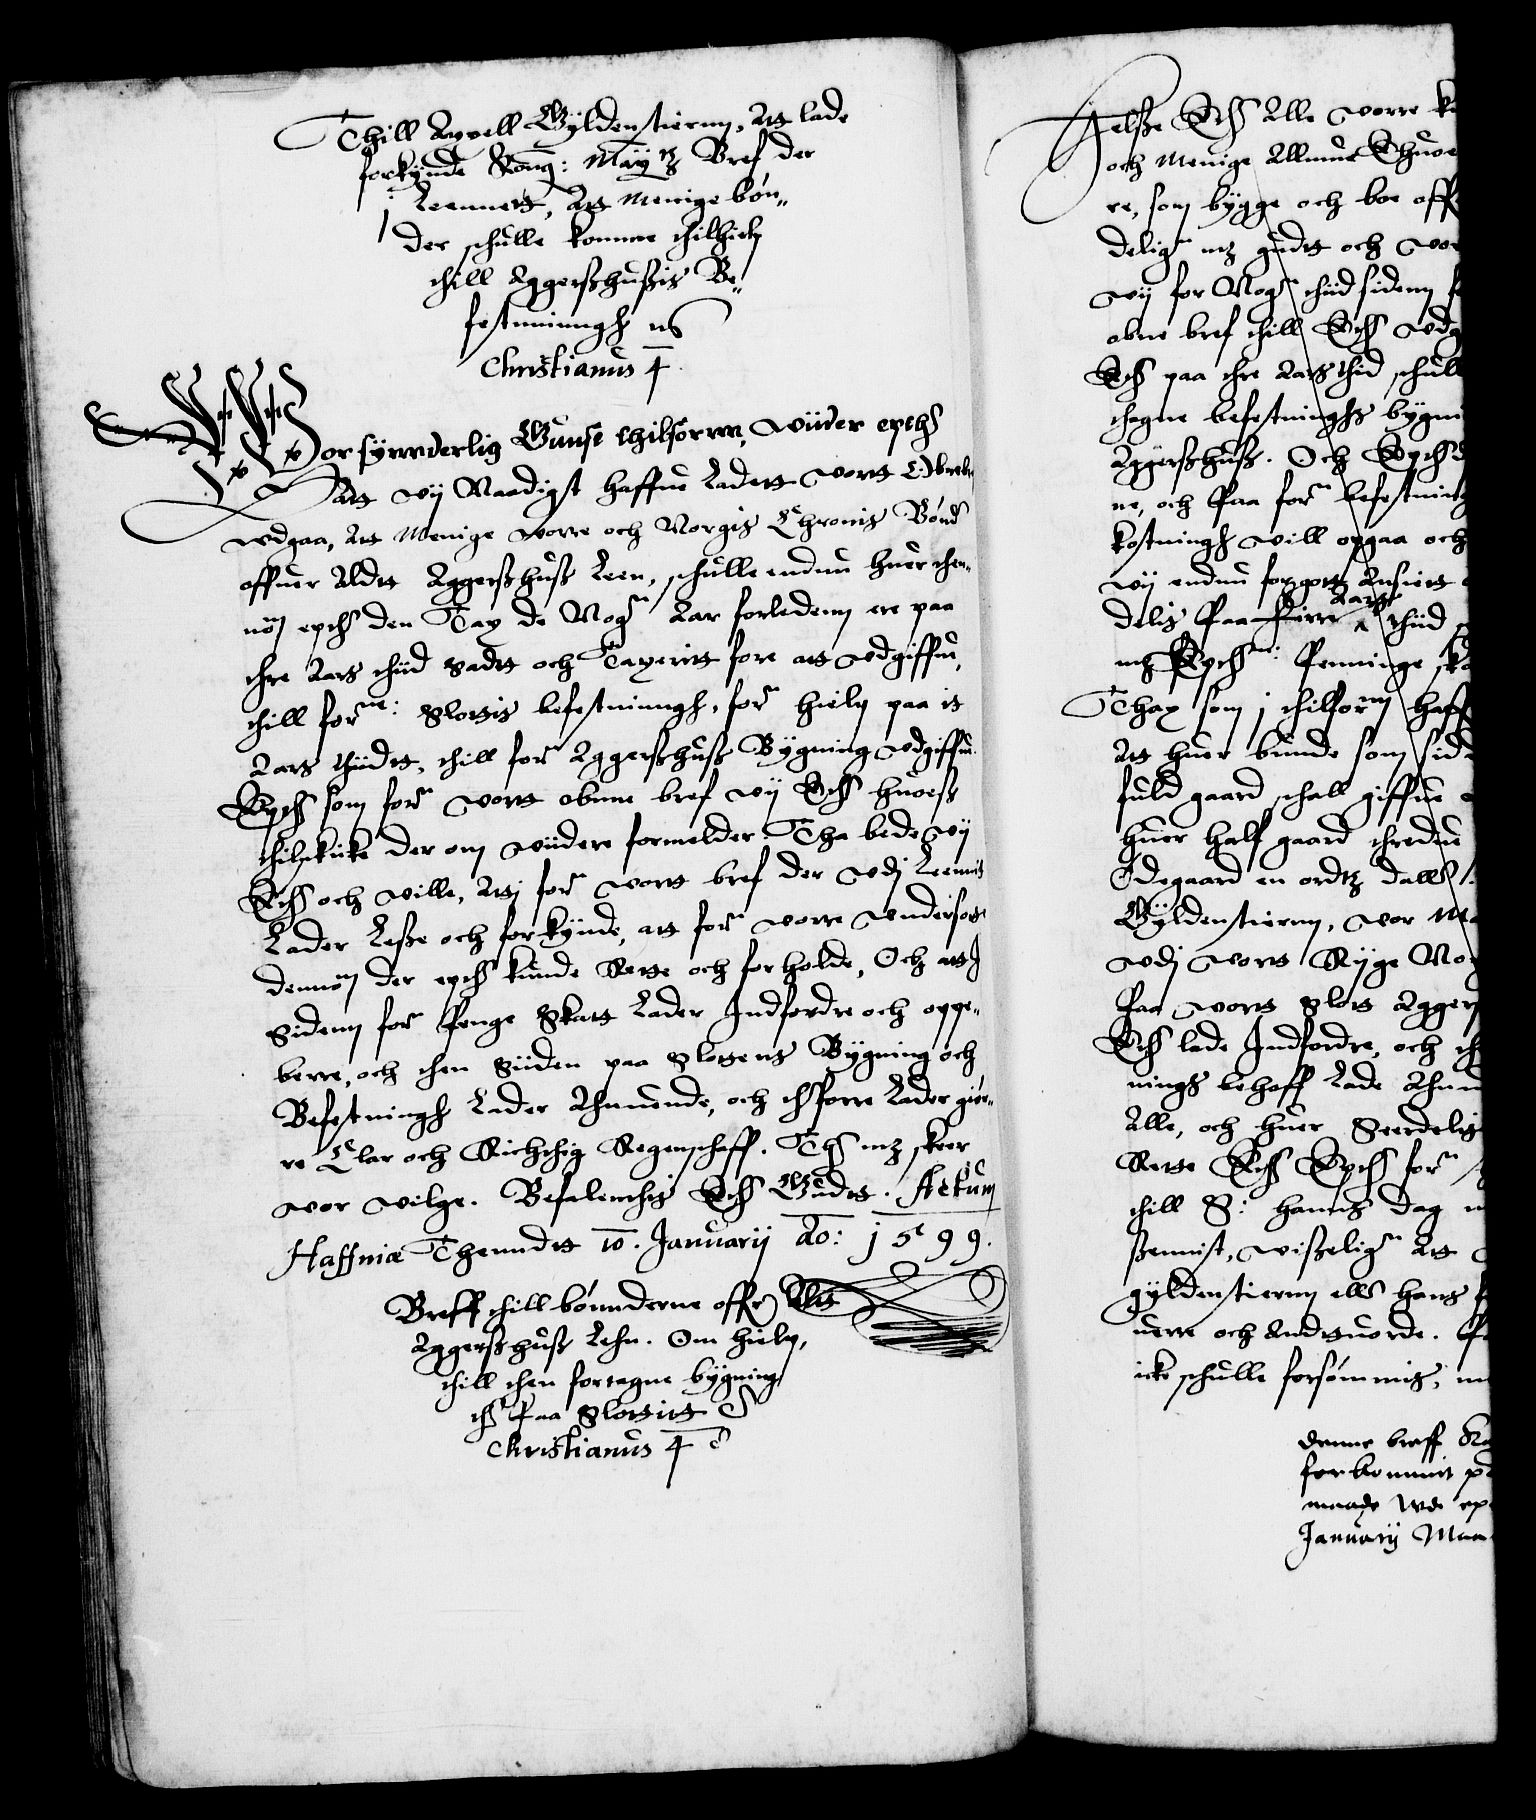 Thill Axell Gyldenstiernn, Att lade
forkynde Kong: May:tz Bref der
i Leennett, Att Menige bøn„
der schulle komme thilhielp
thill Aggershussis Be„
festninngh ɔc
Christianus 4
Vor synnderlig Gunst thilfornn, Wiider epther
Att wy Naadigst haffue Ladett wortt obnebref
wdgaa, Att Menige worre och Norgis Chronis Bønd
offuer Aldtt Aggershuss Leen, schulle endnu huer then„
nom epther den Tax de Nogen Aar forledenn ere paa
thre Aars thiid Satt och Taxeritt fore att wdgiffue,
thill for:ne Slottis befestninngh, for hielp paa it
Aars thiidt, thill for:ne Aggershuss Bygning wdgiffue.
Epther som for:ne wortt obnne bref wy Ether huoess
thilskicke der om wiidere formelder. Tha bede wy
Ether och wille, Att j for:ne wortt bref der wdj Leenitt
Lader Lesse och forkynde, att for:ne worre wndersot„
dennom der epther kunde Rette och forholde, Och att J
Sidenn for:ne Penge Skatt Lader Indfordre och oppe„
berre, och then Siiden paa Slottens Bygning och
Befestningh Lader Anuende, och therforre Lader giør„
re Clar och Richthig Regenschaff. Ther mz skeer
wor wilge. Befalendis Ether Gudt. Actum
Haffniæ Thenndtt 10. Januarij Ao: 1599.
Breff thill bønnderne offuer Alt
Aggershuss Lehn. Om hielp,
thill then fortagne bygning
ther paa Slottitt
Christianus 4
Helsse Ether Alle worre
och Menige Almue Ehuoe
re, som bygge och boe off
delig:n mz gudtt och
wy for Nogen thiid sidenn
obne bref thill Ether wdg
Ether paa thre Aars thid schull
thagne befestninghs bygni
Aggershuss. Och Epther
ne, och Paa for:ne befestning
kostningh will opgaa och
wy endnu forgott Ansiett
delis Paa Aars thiid
mz Penninge
Thax som j thilfornn haff
Att huer bunde som sid
fuld gaard schall giffue
huer half gaard thredue
Ødegaard en ordtz daller
Gyldenstiernn, wor
wdj wortt Ryge Nor
Paa wortt Slott Agger
Ether lade Indfordre, och
nings behoff Lade Anu
Alle, och huer Seerdelis
Rette Ether Epther for:ne
thill S: hanns dag
ssennist, wisselig:n Att
gyldenstiernn eller hans
uerre och Andtuorde.
icke schulle forsømmis,
Denne breff
forkommit
maade Wdi
Januarij